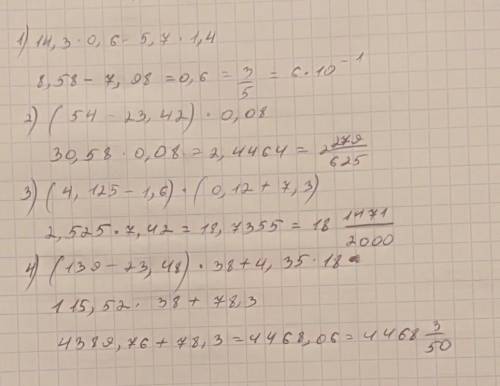 1) 14,3 · 0,6 - 5,7 · 1,4
8,58 - 7,98 = 0,6 = 3/5 = 6·10⁻¹
2) (54 - 23,42) · 0,08
30,58 · 0,08 = 2,4464 = 2 279/625
3) (4,125 - 1,6) · (0,12 + 7,3)
2,525 · 7,42 = 18,7355 = 18 1471/2000
4) (139 - 23,48) · 38 + 4,35 · 18
115,52 · 38 + 78,3
4389,76 + 78,3 = 4468,06 = 4468 3/50